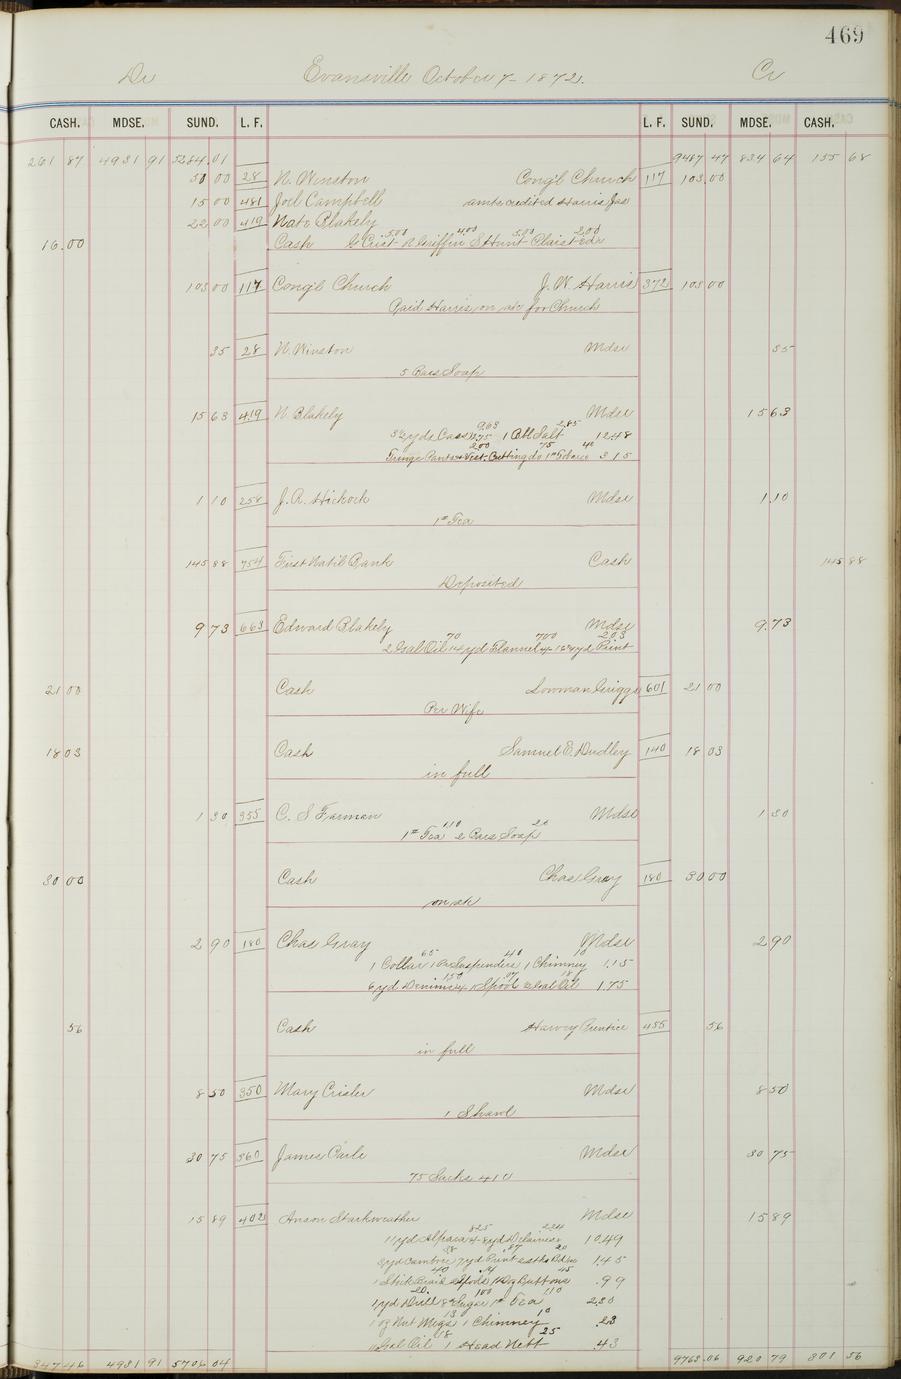 469
Dr Evansville October 7 - 1872. Cr
CASH. MDSE. SUND. L. F. L. F. SUND. MDSE. CASH.
261 87 4931 91 5284.01 9487 47 834 64 155 68
50 00 28 N. Winston Cong'l Church 117 103.00
15 00 481 Joel Campbell amts credited Harris Jas
22 00 419 Nate Blakely
5.00 4.00 5.00 2.00
16.00 Cash G Crist N Griffin S Hunt
103 00 117 Cong'l Church J. W. Harris 372 103 00
Paid Harris on a/c for Church
35 28 N. Winston Mdse 35
5 Bars Soap
15 63 419 N. Blakely Mdse 15 63
9.63 2.85
yds 1 Bbl Salt 12.48
200 75 40
Pants & Vest Cutting do 3.15
1 10 258 J. R. Hickock Mdse 1.10
1# Tea
145 88 754 First Nat'l Bank Cash 145 88
Deposited
9 73 663 Edward Blakely Mdse 9.73
70 700 203
2 Gal Oil 14 yd Flannel yd Print
21 00 Cash Lowman Griggs 601 21 00
Per Wife
18 03 Cash Samuel E. Dudley 140 18 03
in full
1 30 355 C. S Farman Mdse 1 30
1.10 20
1# Tea 2 Bars Soap
30 00 Cash Chas Gray 180 30 00
on a/c
2 90 180 Chas Gray Mdse 2 90
65 40 10
1 Collar 1 Pr Suspenders 1 Chimney 1.15
1.50 .07 18
6 yd Denims 1 Spool Gal Oil 1.75
56 Cash Harvey Prentice 455 56
in full
8 50 350 Mary Crisler Mdse 8 50
1 Shawl
30 75 360 James Carle Mdse 30 75
75 Sacks 410
15 89 402 Anson Starkweather Mdse 15 89
825 224
11 yd Alpaca 8 yd Delaines 10.49
38 .87 20
3 yd Cambric 7 yd Print 1.45
40 .14 45
1 Stick Braid 2 Spools Dog Buttons .99
20. 100 110
1 yd Drill 8# Sugar 1# Tea 2.30
13 10
1 oz Nut Megs 1 Chimney .23
18 25
Gal Oil 1 Head Nett .43
347 46 4931 91 5706 04 9763.06 920 79 301 56